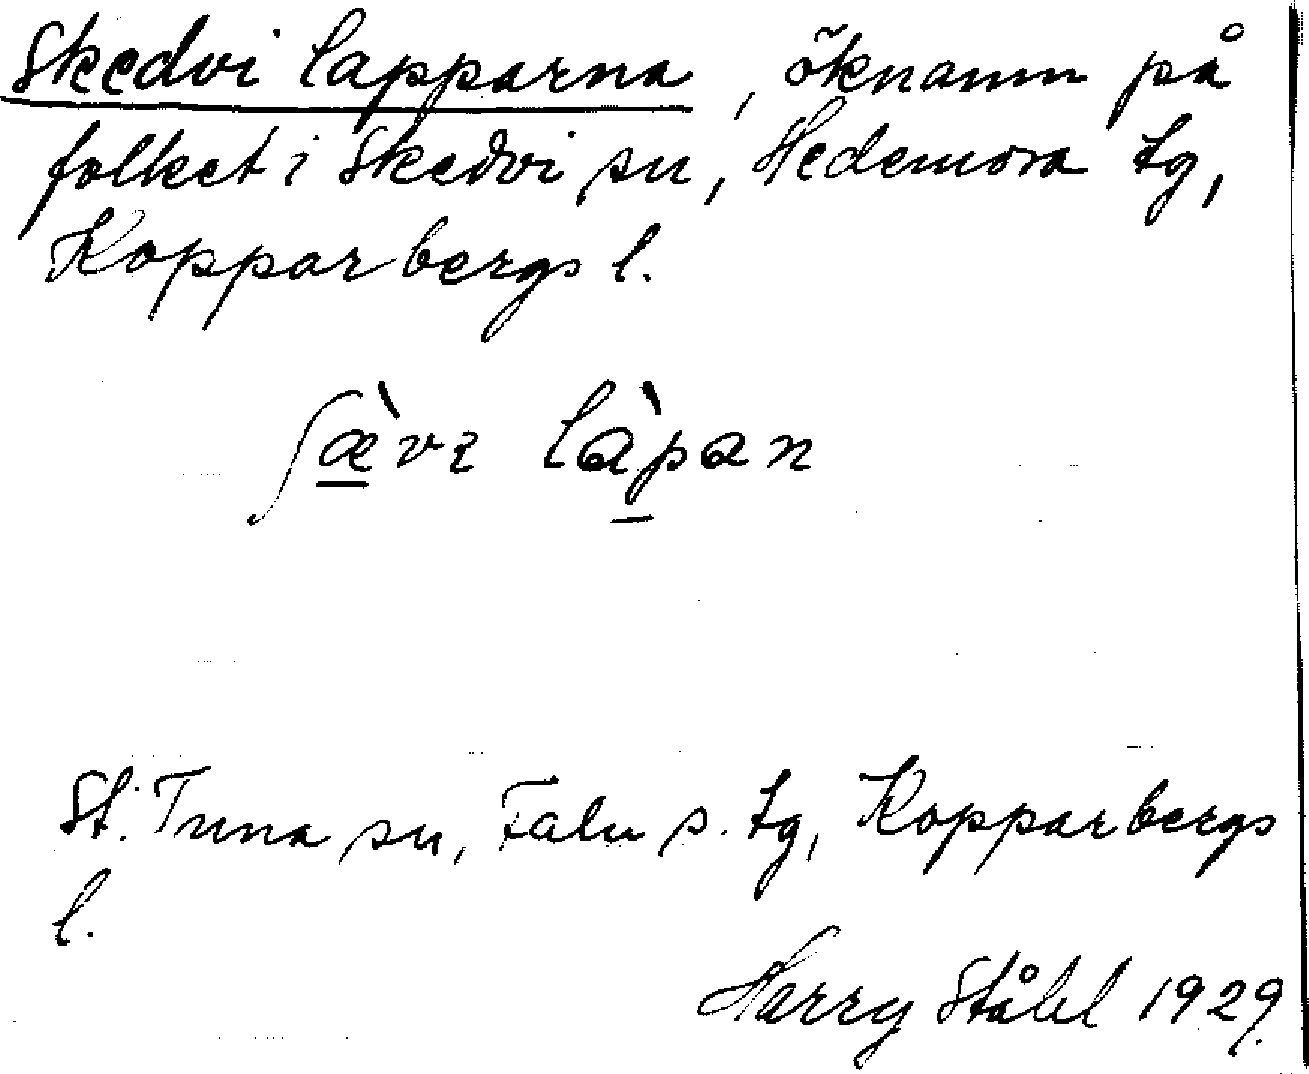 Skedvi lapparna, öknamn på
folket i Skedvi sn, Hedemora tg,
Kopparbergs l.
ʃæ̀vɩ làpan
St. Tuna sn, Falu s. tg, Kopparbergs
l.
Harry Ståhl 1929.